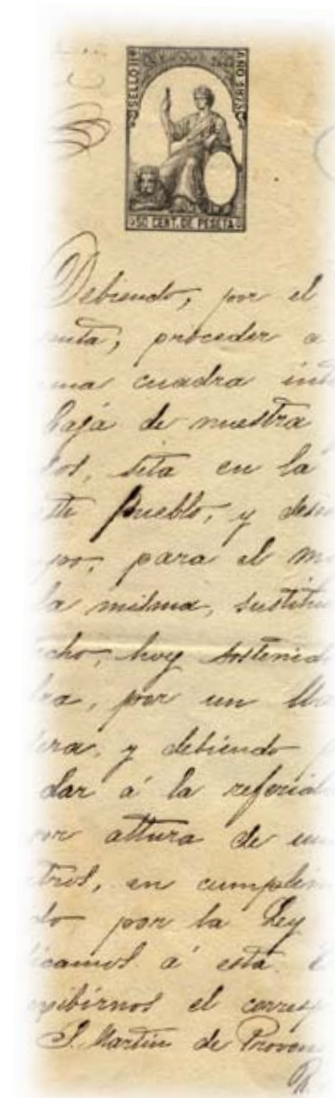 SELLO 11º
AÑO 1877
50 CENT. DE PESETA
Debiendo, por el
proceder a
una cuadra int
baja de nuestra
los, sita en la
te Pueblo, y dese
po, para el m
la misma, sustitu
cho, hoy sostenid
ra, por un
era, y debiendo
dar á la referid
or altura de un
tros, en cumplim
do por la Ley
licamos á esta
xpibirnos el corresp
S. Martin de Proven